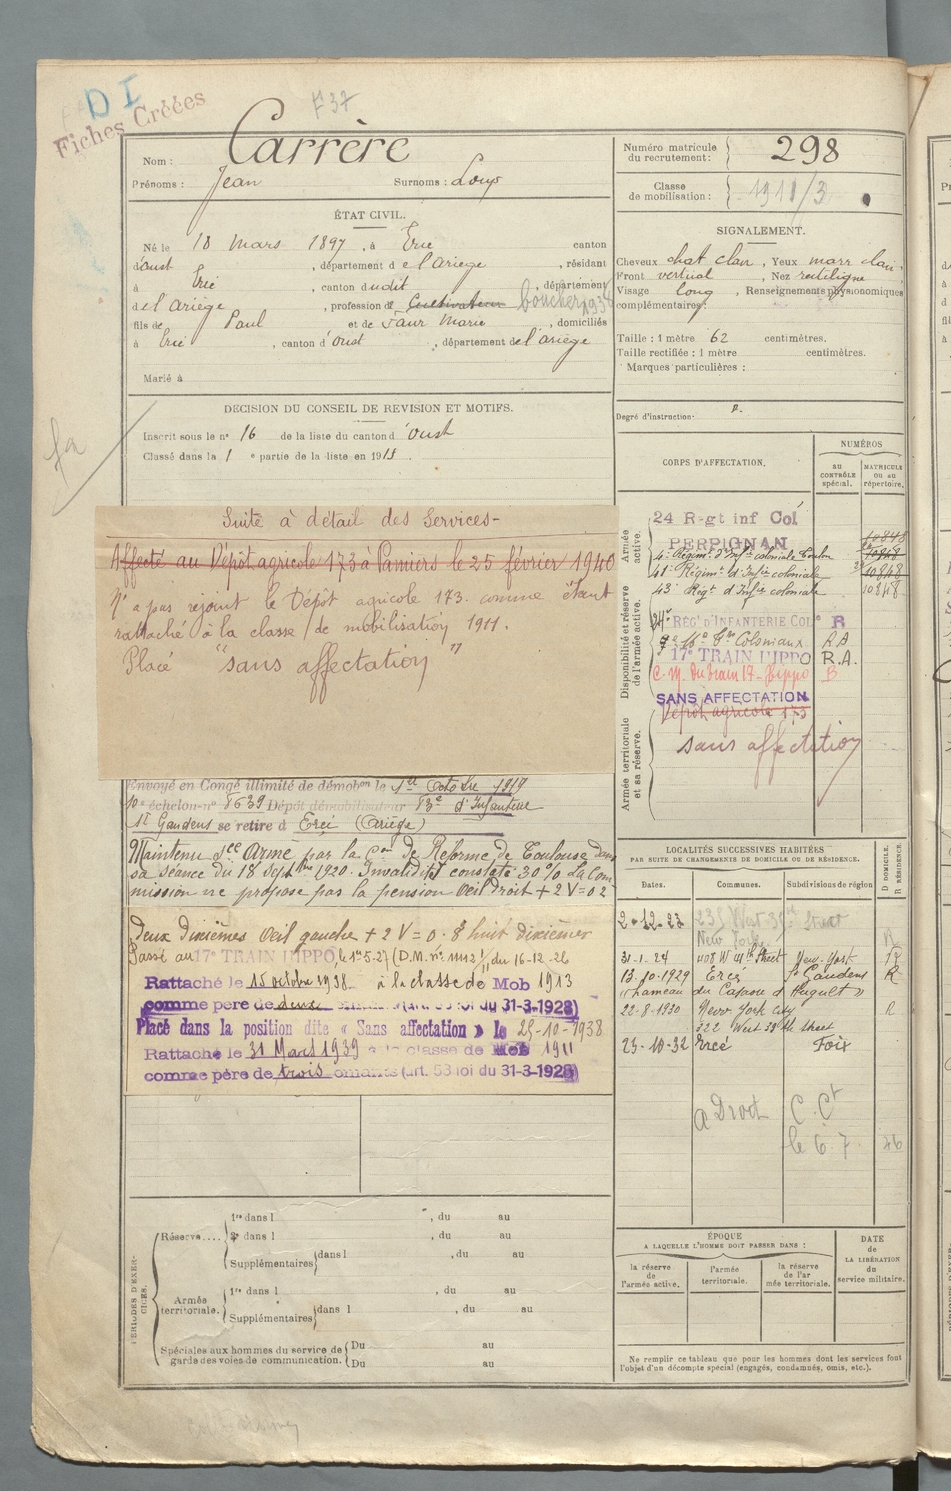 D I
Fiches Créées
F37
Nom : Carrère
Prénoms : Jean Surnoms : Loup
Numéro matricule du recrutement : 298
Classe de mobilisation : 1911/3
ÉTAT CIVIL.
Né le 18 Mars 1897, à Ercé canton
d'oust, département de l'Ariège, résidant
à Ercé, canton dudit, département
de l'Ariège, profession de Cultivateur boucher 1938
fils de Paul et de Faur Marie, domiciliés
à Ercé, canton d'oust, département de l'ariège
Marié à
SIGNALEMENT.
Cheveux chat clair, Yeux marr clair,
Front vertical, Nez rectiligne
Visage long, Renseignements physionomiques
complémentaires:
Taille : 1 mètre 62 centimètres.
Taille rectifiée : 1 mètre centimètres.
Marques particulières :
Degré d'instruction: 2.
DÉCISION DU CONSEIL DE REVISION ET MOTIFS.
Inscrit sous le n° 16 de la liste du canton d'oust
Classé dans la 1e partie de la liste en 191
Suite à détail des Services-
Affecté au Dépôt agricole 173 à Pamiers le 25 février 1940
N'a pas rejoint le Dépôt agricole 173 comme étant
rattaché à la classe de mobilisation 1911.
Placé "sans affectation"
Envoyé en Congé illimité de démobon le 1er Octobre 1919
10e échelon-n° 8639 Dépôt démobilisateur 83e d'Infanterie
St Gaudens se retire à Ercé (Ariège)
Maintenu sce Armé par la Con de Réforme de Toulouse dans
sa séance du 18 Septbre 1920. Invalidité constatée 30% La Com
mission ne propose par la pension Oeil Droit + 2 V = 0 2
Deux Dixièmes Oeil gauche + 2 V = 0.8 huit dixièmes
Passé au 17e TRAIN HIPPO, le 1er 5-27 (D.M. n° 11112 du 16-12-26
Rattaché le 15 octobre 1938 à la classe de Mob 1913
comme père de deux enfants (art. 58 loi du 31-3-1928)
Placé dans la position dite « Sans affectation » le 28-10-1938
Rattaché le 31 Mars 1939 à la classe de Mob 1911
comme père de trois enfants (art. 58 loi du 31-3-1928)
CORPS D'AFFECTATION.
NUMÉROS
AU CONTRÔLE spécial.
MATRICULE OU AU répertoire.
Armée active.
24 Rgt inf Col
PERPIGNAN
4e Régimt d'Infie coloniale Toulon 10848
41e Régimt d'Infie coloniale 10848
43e Régt d'Infie coloniale 10848
Disponibilité et réserve de l'armée active.
24e RÉGt D'INFANTERIE COLle R
Coloniaux R.A
17e TRAIN HIPPO R.A.
C.M. du train 17 - Hippo B
SANS AFFECTATION
Armée territoriale et sa réserve.
Dépôt agricole 173
sans affectation
LOCALITÉS SUCCESSIVES HABITÉES
PAR SUITE DE CHANGEMENTS DE DOMICILE OU DE RÉSIDENCE.
Dates. Communes. Subdivisions de région D DOMICILE. R RÉSIDENCE.
2-12-23 235 West 35th Street
New York R
31-1-24 408 W 41th Street New-York R
13-10-1929 Ercé St Gaudens R
(hameau du d'Huguet)
22-8-1930 New York City R
322 West 38th street
23-10-32 Ercé Foix
a Droit C. Ct
le 6.7 46
PÉRIODES D'EXERCICES.
Réserve.... 1re dans l , du au
2e dans l , du au
Supplémentaires dans l , du au
Armée territoriale. 1re dans l , du au
Supplémentaires dans l , du au
Spéciales aux hommes du service de garde des voies de communication. Du au
Du au
ÉPOQUE
A LAQUELLE L'HOMME DOIT PASSER DANS :
la réserve de l'armée active.
l'armée territoriale.
la réserve de l'armée territoriale.
DATE de LA LIBÉRATION du service militaire.
Ne remplir ce tableau que pour les hommes dont les services font
l'objet d'un décompte spécial (engagés, condamnés, omis, etc.).